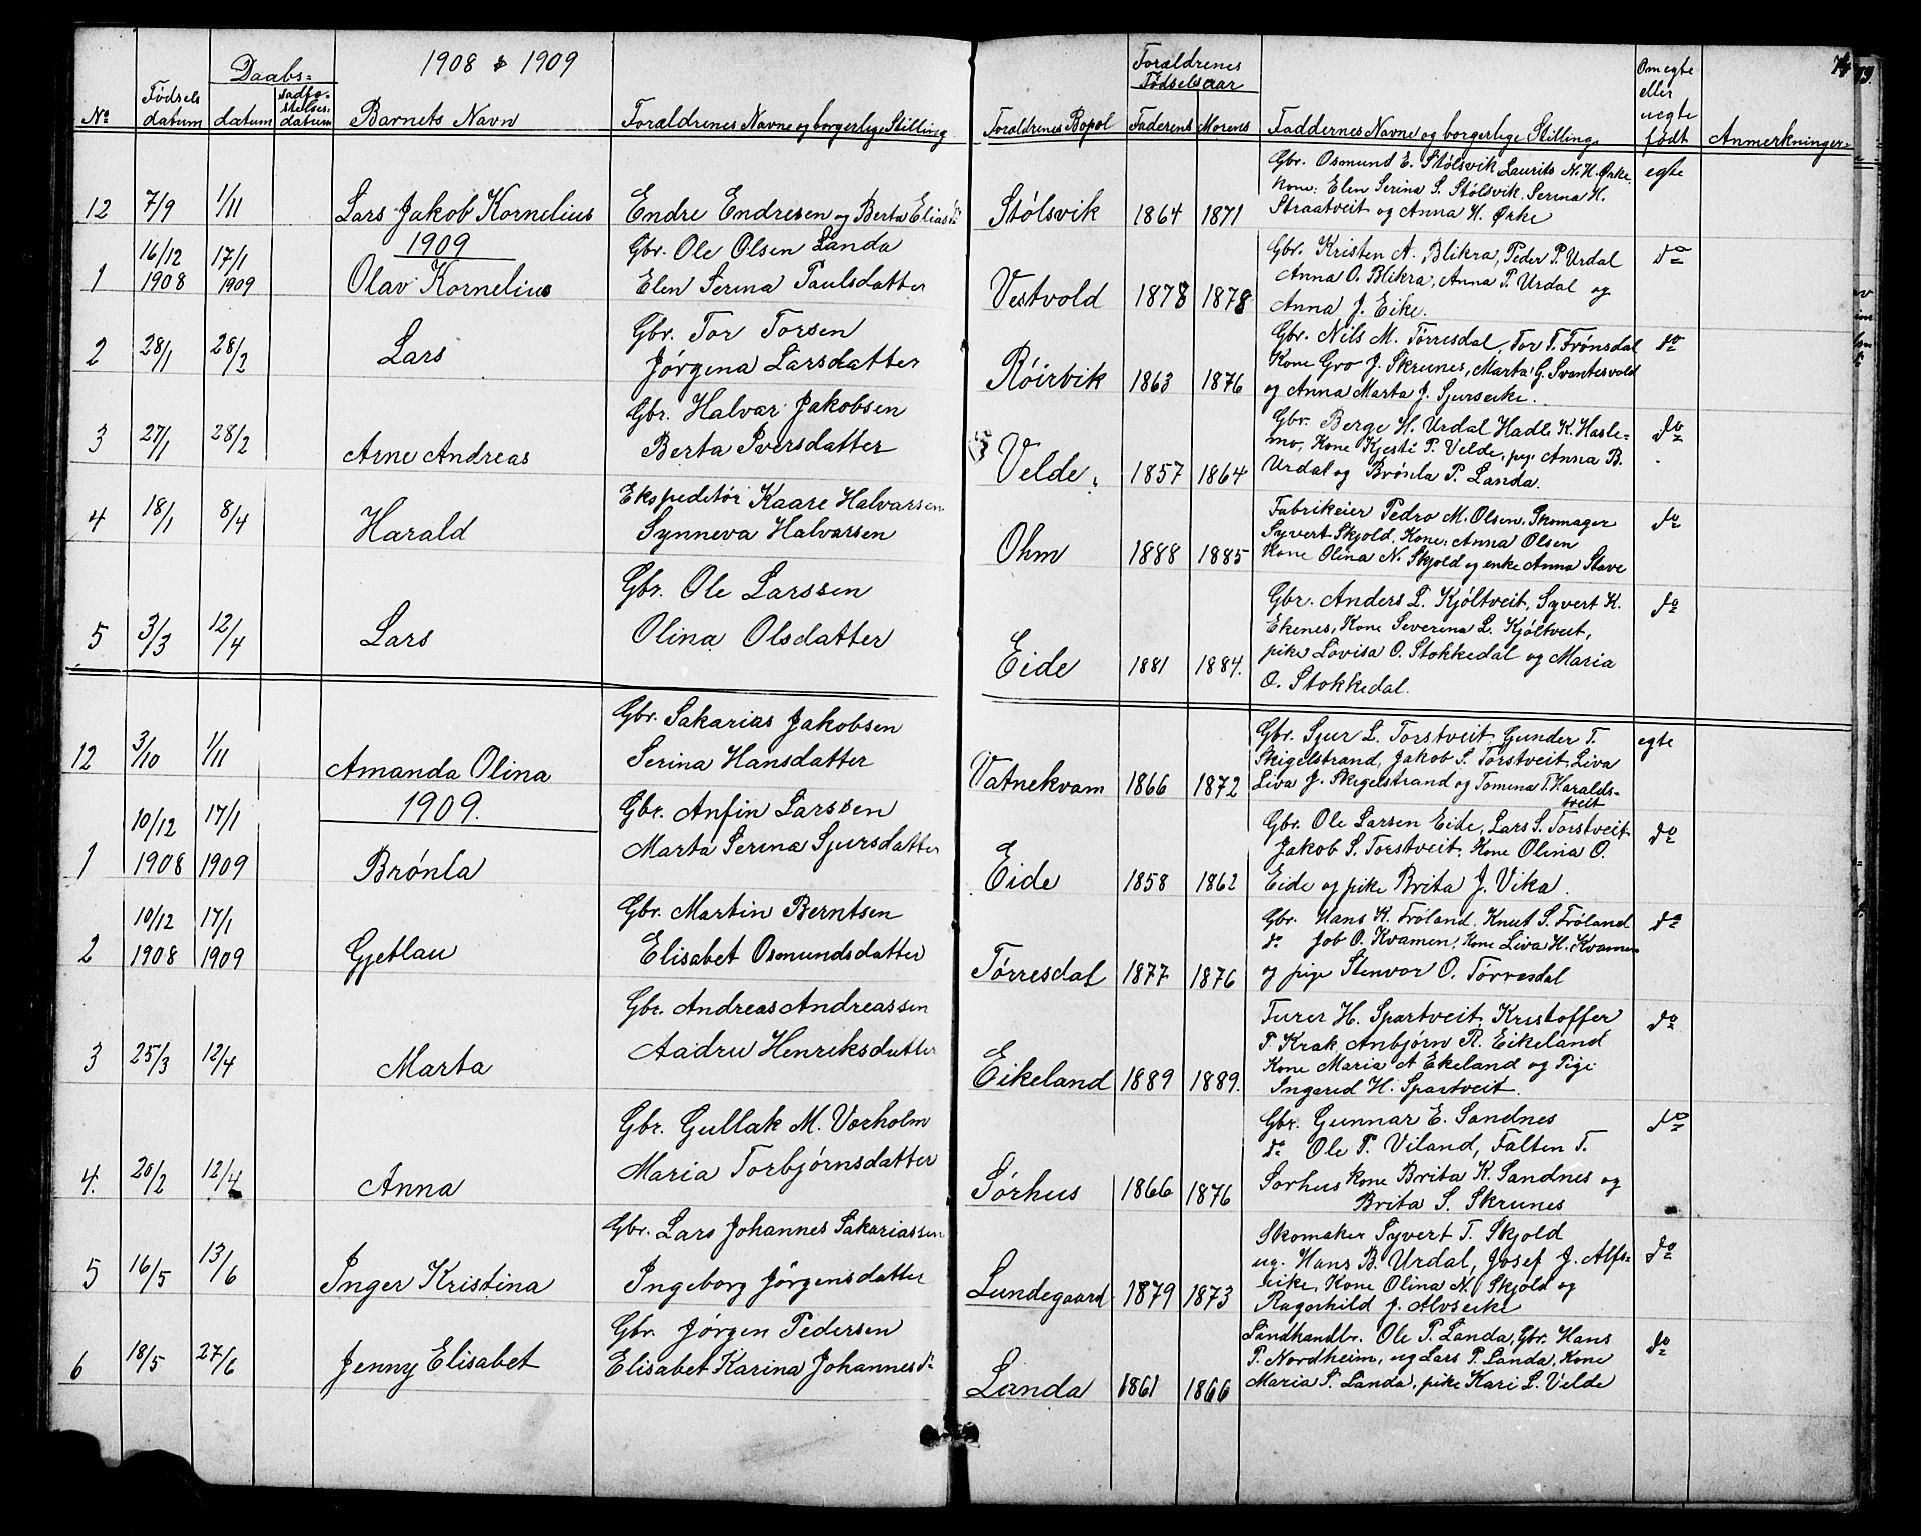 1908 & 1909
74
No Fødsels datum Daabs= datum stadfæstelses: datum Barnets Navn Forældrenes Navne og borgerlige Stilling. Forældrenes Bopæl Forældrenes Fødselsaar Faderens Morens Faddernes Navne og borgerlige Stilling Om egte eller uegte født Anmerkninger.
12 7/9 1/11 Lars Jakob Kornelius Endre Endresen og Berta Elias Stølsvik 1864 1871 egte
Gbr. Osmund E. Stølsvik Laurits N. H. Ørke,
kone: Elen Serina S. Stølsvik, Serina H.
Straatveit og Anna H. Ørke
1909
1 16/12 1908 17/1 1909 Olav Kornelius Vestvold 1878 1878 do
Gbr. Ole Olsen Landa
Elen Serina Paulsdatter
Gbr. Kristen A. Blikra, Peder P. Urdal
Anna O. Blikra, Anna P. Urdal og
Anna J. Eike.
2 28/1 28/2 Lars Røirvik 1863 1876 do
Gbr. Tor Torsen
Jørgena Larsdatter
Gbr. Nils M. Tørresdal, Tor T. Frønsdal
Kone Gro J. Skrunes, Marta G. Svantesvold
og Anna Marta J. Sjurseike.
3 27/1 28/2 Arne Andreas Velde 1857 1864 do
Gbr. Halvar Jakobsen
Berta Iversdatter
Gbr. Berge H. Urdal Hadle K. Hasle=
mo, Kone Kjesti P. Velde, pg. Anna B.
Urdal og Brønla P. Landa.
4 18/1 8/4 Harald Ohm 1888 1885 do
Ekspeditør Kaare Halvarsen
Synneva Halvarsen
Fabrikeier Pedro M. Olsen, Skomager
Syvert Skjold, Kone: Anna Olsen
Kone Olina N. Skjold og enke Anna Stave
5 3/3 12/4 Lars Eide 1881 1884. do
Gbr. Ole Larssen
Olina Olsdatter
Gbr. Anders L. Kjøltveit, Syvert K.
Ekenes, Kone Severina L. Kjøltveit,
pike Lovisa O. Stokkedal og Maria
O. Stokkedal.
12 3/10 1/11 Amanda Olina Vatnekvam 1866 1872 egte
Gbr. Sakarias Jakobsen
Serina Hansdatter
Gbr. Sjur L. Torstveit, Gunder T.
Skigelstrand, Jakob S. Torstveit, Liva
Liva J. Skigelstrand og Tomina T. Haralds=
tveit
1909.
1 10/12 1908 17/1 1909 Brønla Eide 1858 1862 do
Gbr. Anfin Larssen
Marta Serina Sjursdatter
Gbr. Ole Larsen Eide, Lars S. Torstveit
Jakob S. Torstveit, Kone Olina O.
Eide og pike Brita J. Vika.
2 10/12 1908 17/1 1909 Gjetlau Tørresdal 1877 1876 do
Gbr. Martin Berntsen
Elisabet Osmundsdatter
Gbr. Hans K. Frøland, Knut S. Frøland
do Job O. Kvamen, Kone Liva H. Kvamen
og pige Stenvor O. Tørresdal
3 25/3 12/4 Marta Eikeland 1889 1889. do
Gbr. Andreas Andreassen
Aadru Henriksdatter
Turer H. Spartveit, Kristoffer
T. Krak Anbjørn R. Eikeland
Kone Maria A Ekeland og Pige
Ingared H. Spartveit.
4. 20/2 12/4 Anna Sørhus 1866 1876 do
Gbr. Gullak M. Vorholm
Maria Torbjørnsdatter
Gbr. Gunnar E. Sandnes
do Ole P. Viland, Falten T.
Sørhus kone Brita K. Sandnes og
Brita S. Skrunes
5 16/5 13/6 Inger Kristina Lundegaard 1879 1873 do
Gbr. Lars Johannes Sakariassen
Ingeborg Jørgensdatter
Skomaker Syvert T. Skjold
ug. Hans B. Urdal, Josef J. Alfs=
eike, Kone Olina N. Skjold og
Ragnhild J. Alvseike
6 18/5 27/6 Jenny Elisabet Landa 1861 1866 do
Gbr. Jørgen Pedersen
Elisabet Karina Johannesd
Landhandlr. Ole P. Landa, Gbr. Hans
P. Nordheim, ug Lars P. Landa, Kone
Maria S. Landa, pike Kari L. Velde